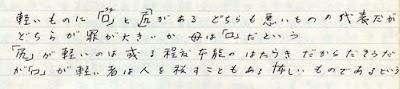 軽いものに「口」と「尻」がある どちらも悪いものの代表だが
どちらが罪が大きいか 母は「口」だという
「尻」が軽いのは或る程度本能のはたらきだからだそうだ
が「口」が軽い者は人を殺すこともある怖しいものであるという